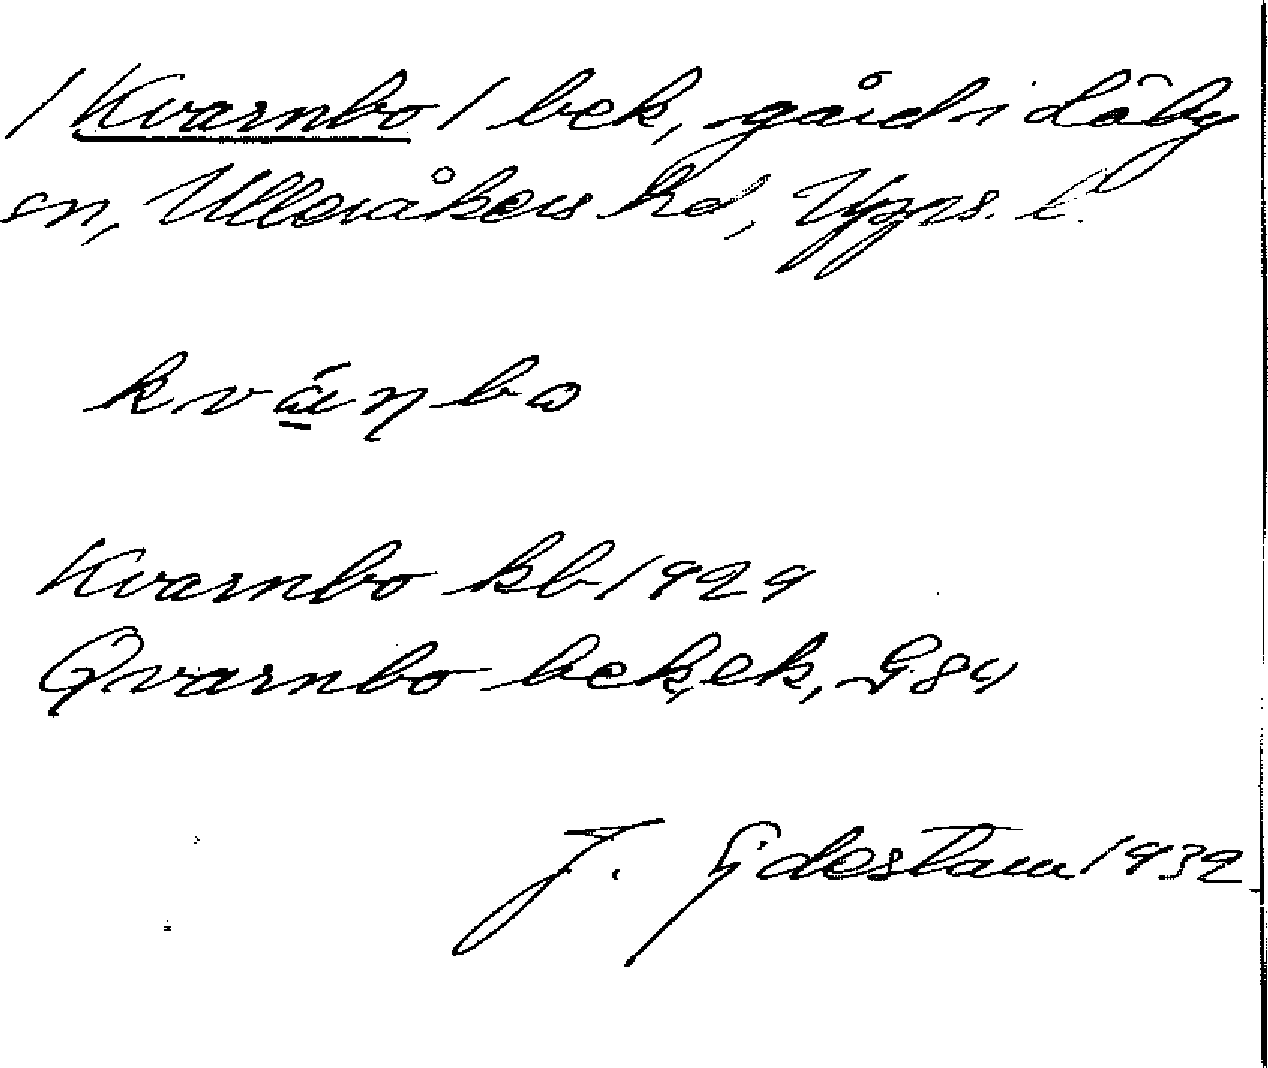 /Kvarnbo/ bek, gård i Läby
sn, Ulleråkers hd, Upps. l.
kvánbo
Kvarnbo kb 1929
Qvarnbo bek, ek, G 84
J. Gjdestam 1932